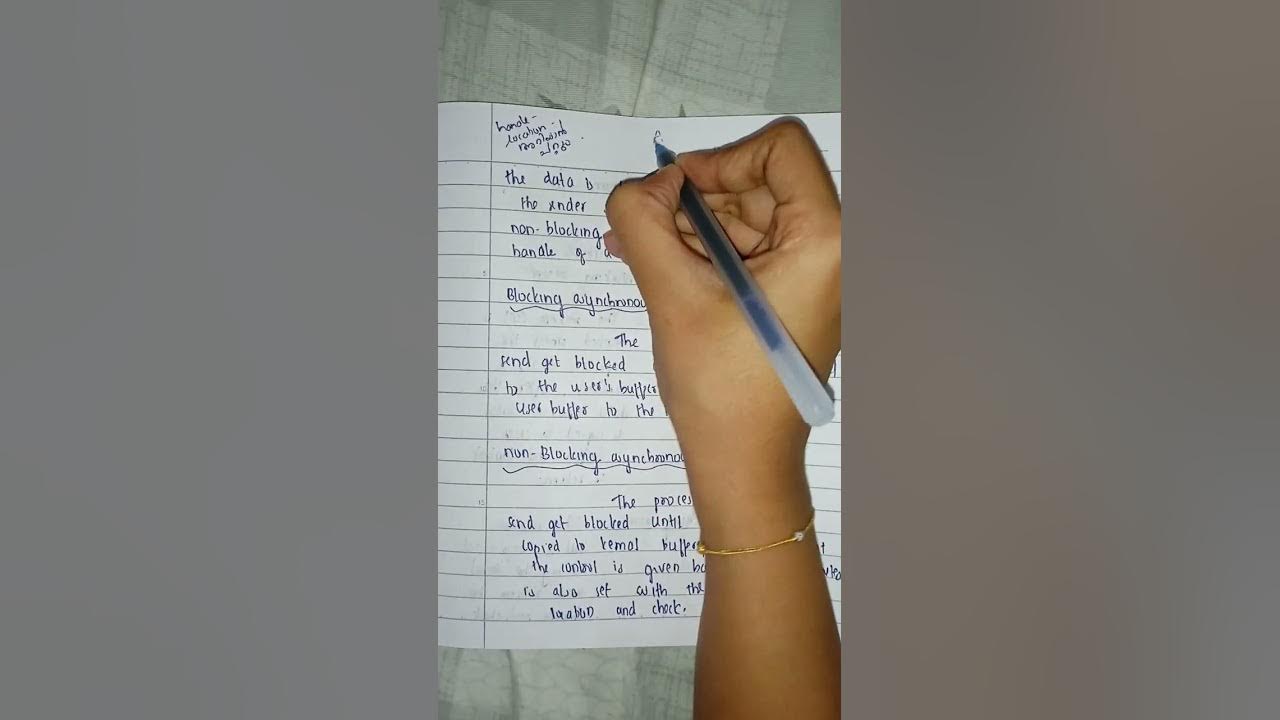 handle -
location
the data is
the xnder
non-blocking
handle of a
Blocking asynchronou
The
send get blocked
to the user's buffer
user buffer to the
non-Blocking asynchronou
The proces
send get blocked until
copied to kernal buffer
the control is given ba
is also set with the
loxation and check.